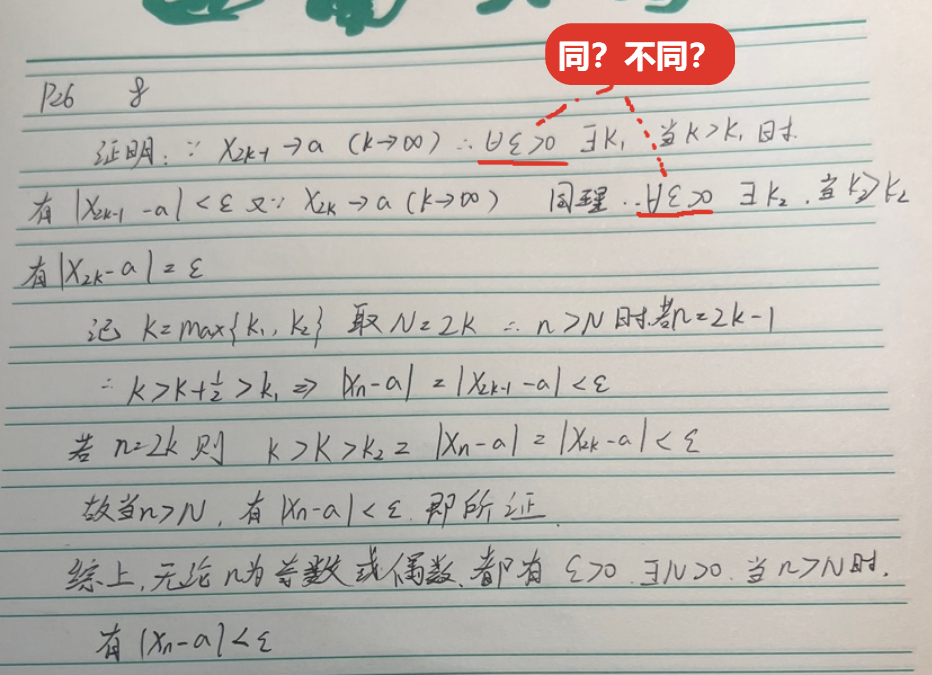 同？不同？
P26 8
证明：∵ X₂ₖ₋₁→a (k→∞) ∴ ∀ε>0 ∃K₁ 当K>K₁时.
有 |X₂ₖ₋₁-a|<ε 又∵ X₂ₖ→a (k→∞) 同理∴∀ε>0 ∃k₂.当k>k₂
有|X₂ₖ-a|=ε
记 K=max{k₁, k₂} 取 N=2K ∴ n>N时.若n=2k-1
∴ k>K+½>k₁ ⇒ |Xn-a|=|X₂ₖ₋₁-a|<ε
若 n=2k 则 k>K>k₂ = |Xn-a|=|X₂ₖ-a|<ε
故当n>N, 有|Xn-a|<ε.即所证.
综上,无论n为奇数或偶数.都有 ε>0.∃N>0.当n>N时.
有|Xn-a|<ε